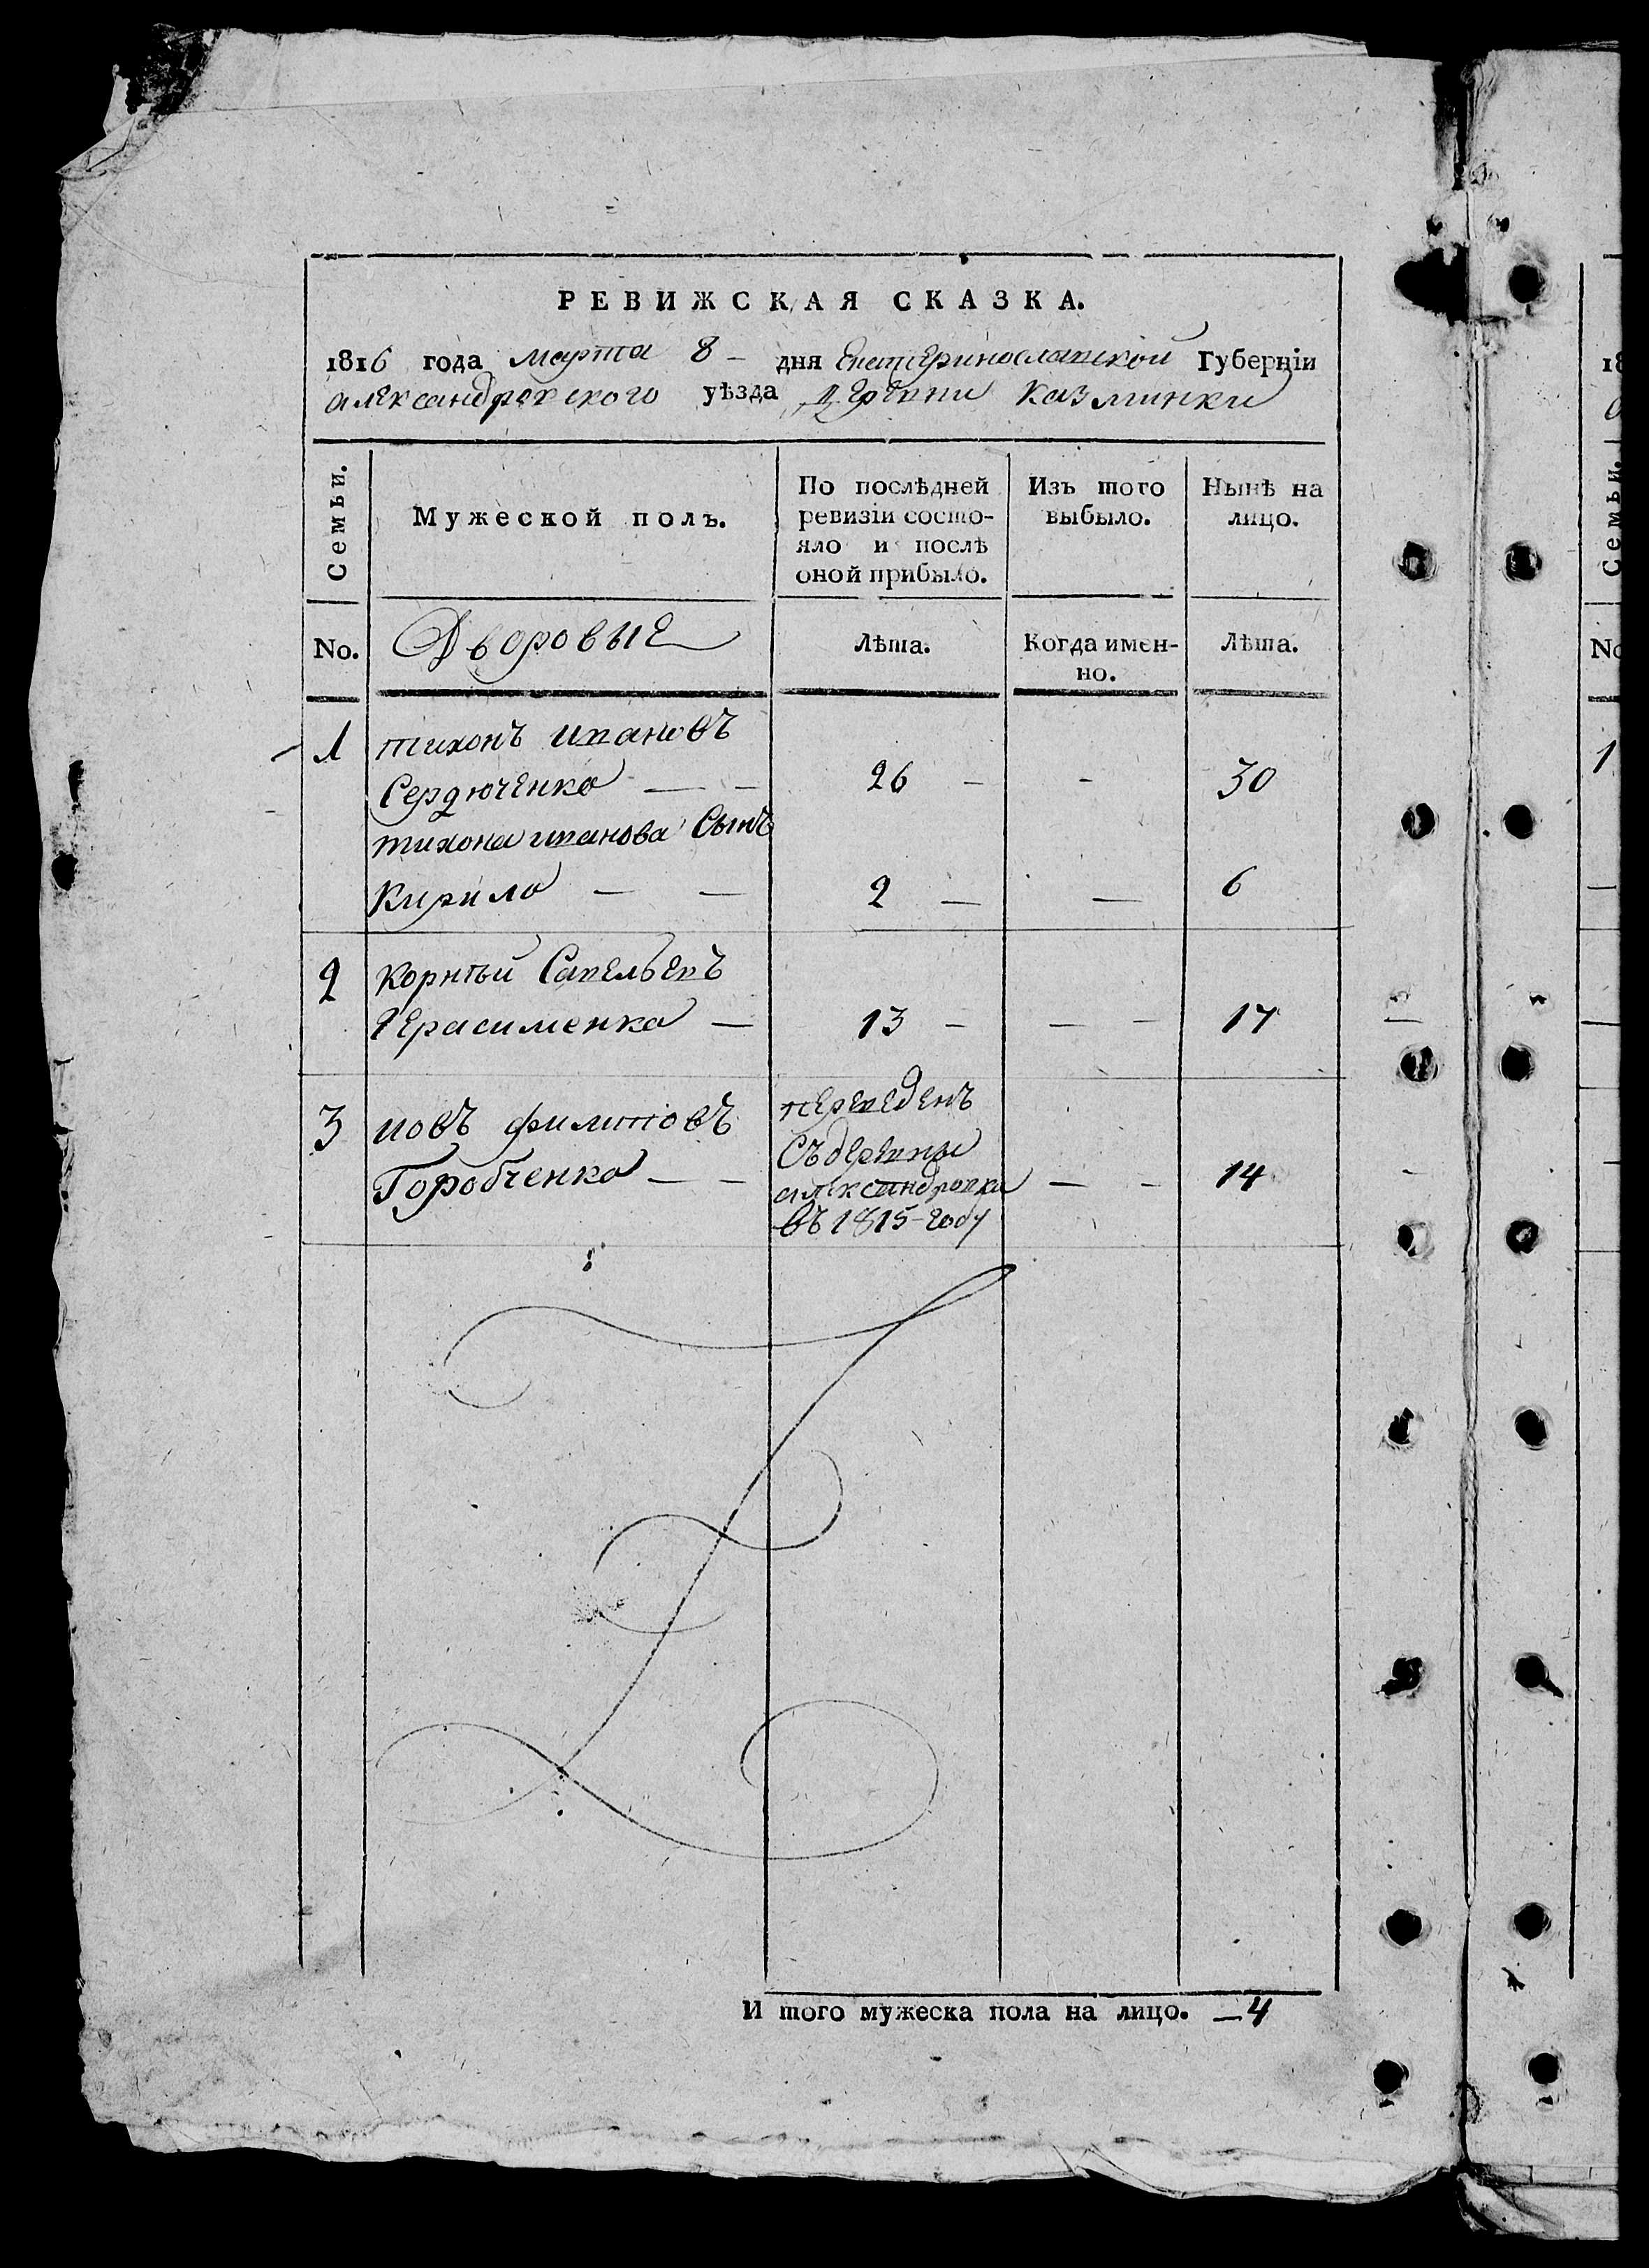 РЕВИЖСКАЯ СКАЗКА.
1816 года марта 8 – дня Екатеринославской Губерніи
александровского уѣзда деревни Казминки
Семьи.
Мужеской полъ.
По послѣдней
ревизіи состо-
яло и послѣ
оной прибыло.
Изъ того
выбыло.
Нынѣ на
лицо.
No.
Дворовые
Лѣта.
Когда имен-
но.
Лѣта.
1 тихонъ ивановъ
Сердюченко — – 26 – - 30
тихона иванова Сынъ
Кирило — — 2 — — 6
2 корнѣй Савельевъ
Герасименко — 13 – — – 17
3 иовъ филиповъ
Горобченко — –
переведенъ
съ деревни
александровки
въ 1815-году
— – 14
И того мужеска пола на лицо. — 4
18
Семьи.
No
1